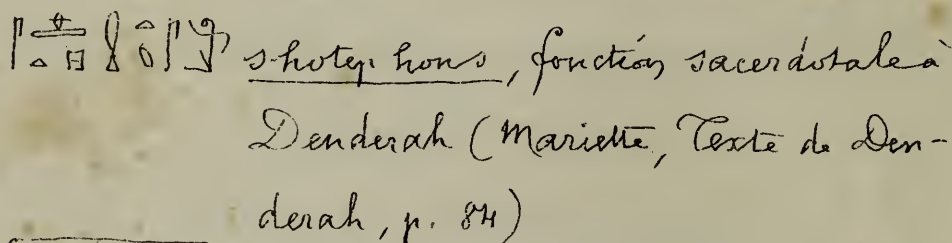 shotep hons, fonction sacerdotale à
Denderah (Mariette, Texte de Den-
derah, p. 84)